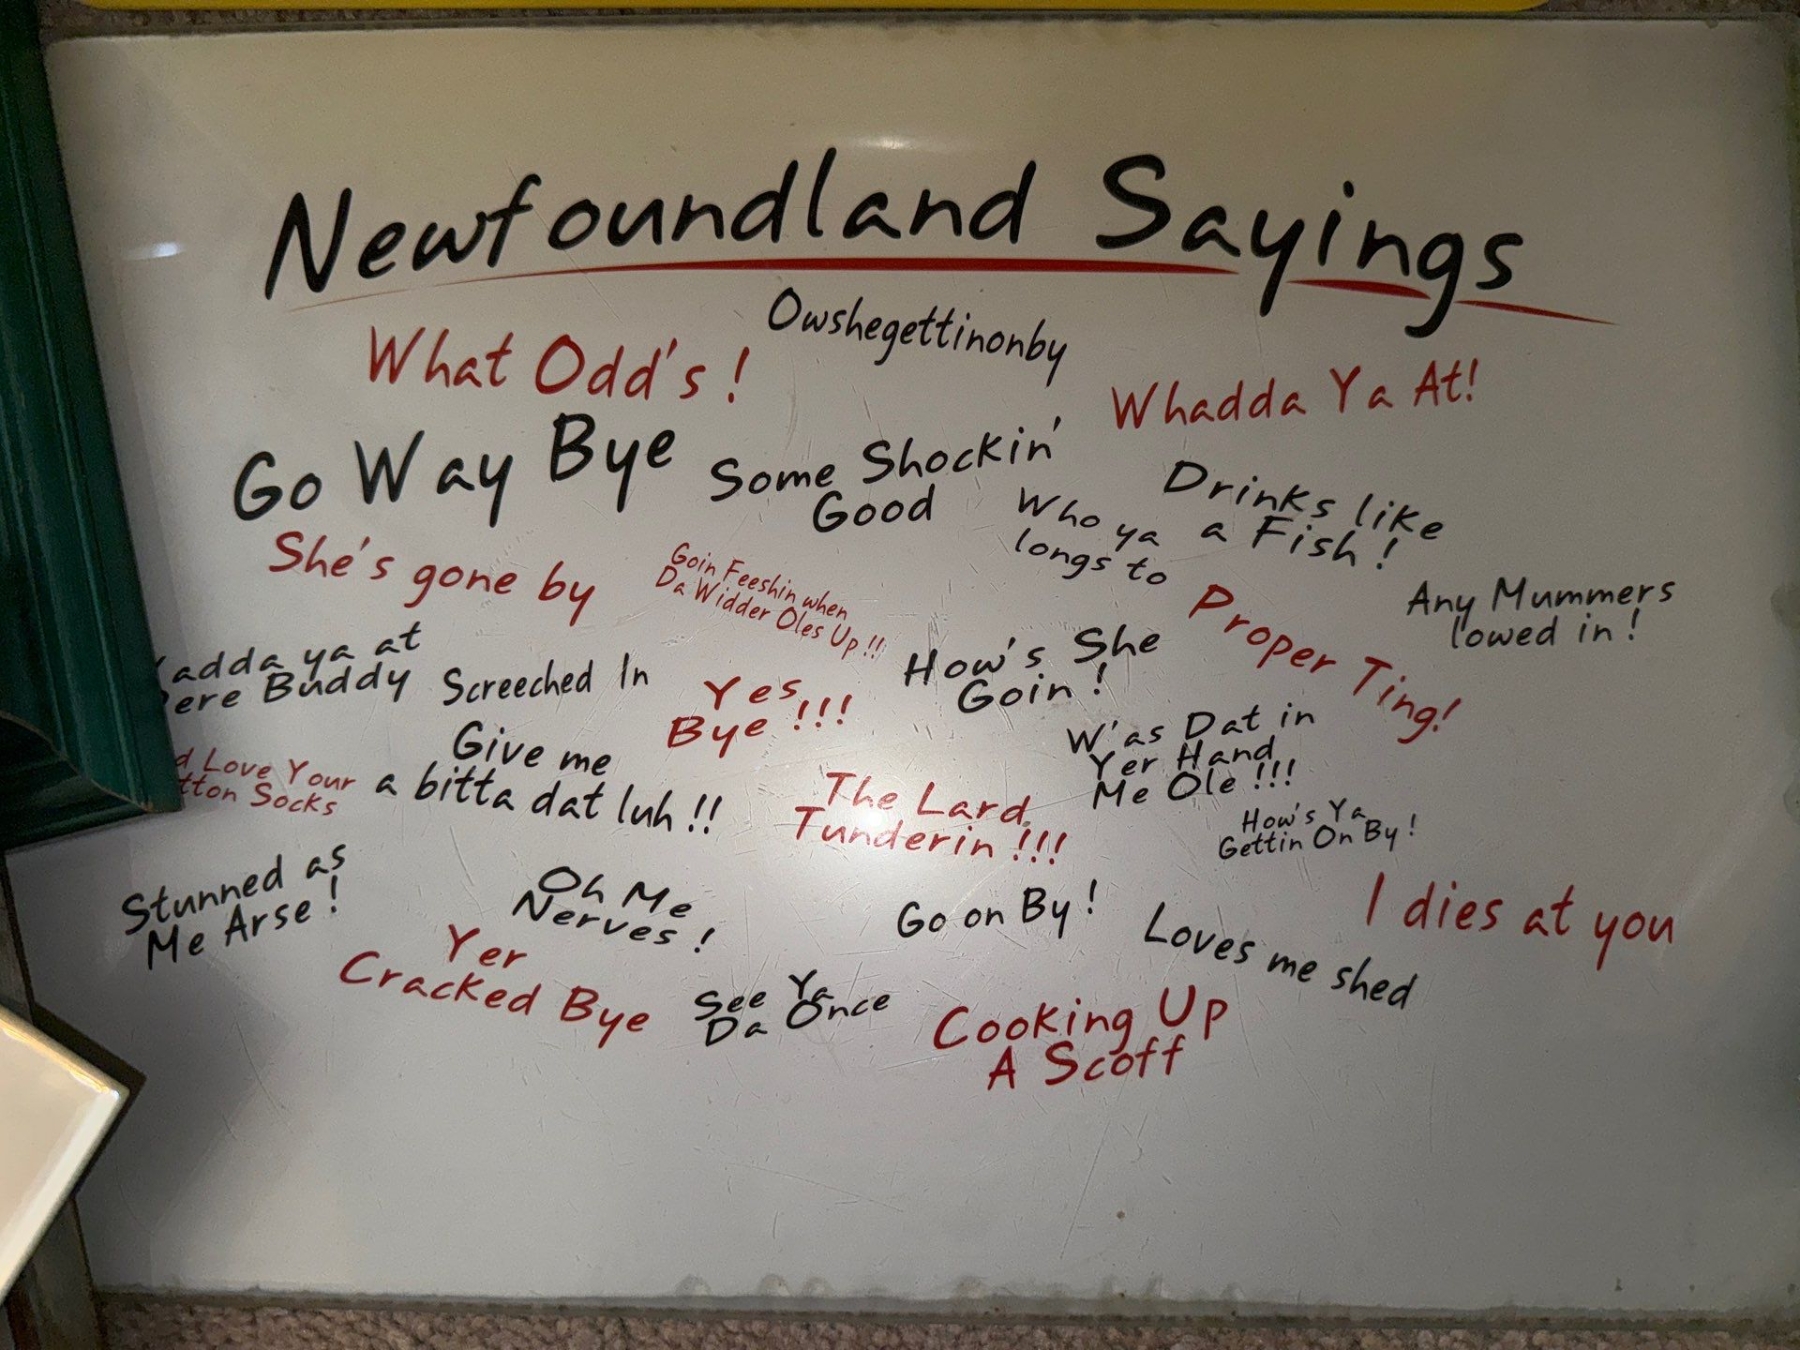 Newfoundland Sayings
Owshegettinonby
What Odd's !
Whadda Ya At!
Go Way Bye
Some Shockin'
Good
Drinks like
a Fish !
Who ya
longs to
She's gone by
Goin Feeshin when
Da Widder Oles Up !!!
Proper Ting!
Any Mummers
lowed in !
adda ya at
ere Buddy
Screeched In
Yes
Bye !!!
How's She
Goin !
W'as Dat in
Yer Hand
Me Ole !!!
Love Your
Socks
Give me
a bitta dat luh !!
The Lard
Tunderin !!!
How's Ya
Gettin On By !
Stunned as
Me Arse !
Oh Me
Nerves !
Go on By !
I dies at you
Loves me shed
Yer
Cracked Bye
See Ya
Da Once
Cooking Up
A Scoff